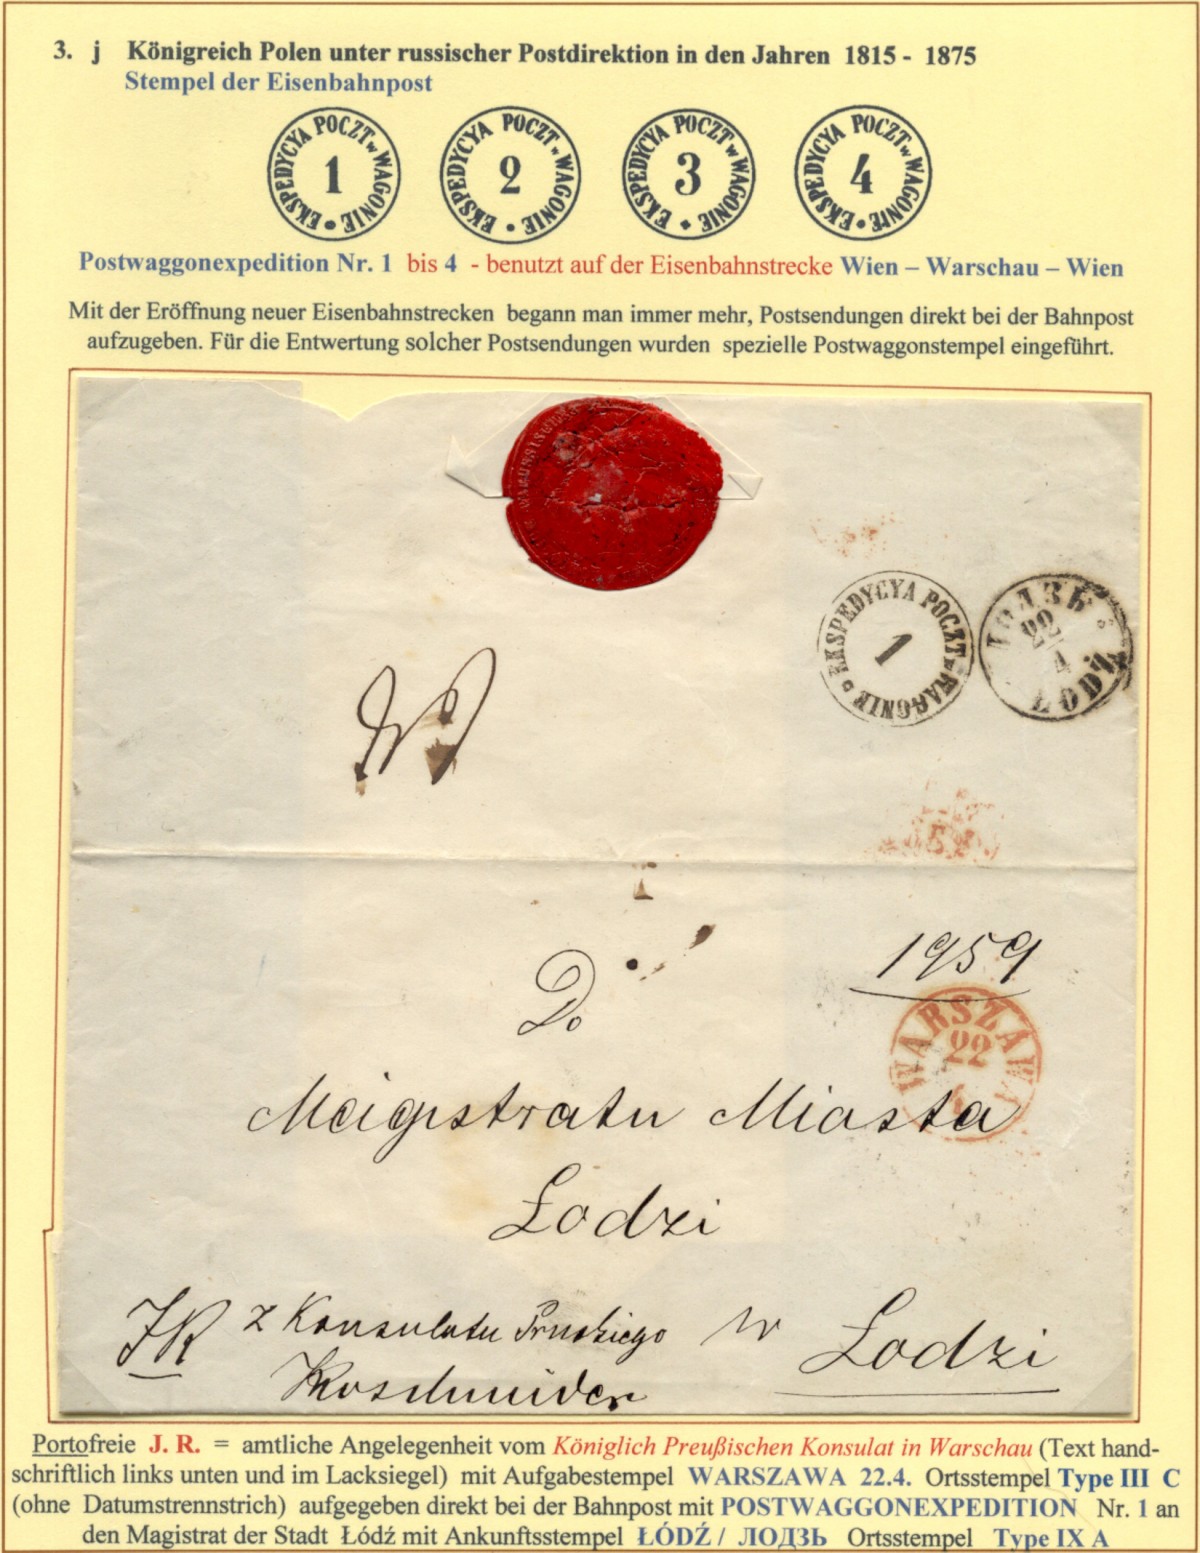 3. j Königreich Polen unter russischer Postdirektion in den Jahren 1815 - 1875
Stempel der Eisenbahnpost
EKSPEDYCYA POCZT w WAGONIE 1
EKSPEDYCYA POCZT w WAGONIE 2
EKSPEDYCYA POCZT w WAGONIE 3
EKSPEDYCYA POCZT w WAGONIE 4
Postwaggonexpedition Nr. 1 bis 4 - benutzt auf der Eisenbahnstrecke Wien – Warschau – Wien
Mit der Eröffnung neuer Eisenbahnstrecken begann man immer mehr, Postsendungen direkt bei der Bahnpost
aufzugeben. Für die Entwertung solcher Postsendungen wurden spezielle Postwaggonstempel eingeführt.
EKSPEDYCYA POCZT w WAGONIE 1
ЛОДЗЬ
22
4
ŁODŹ
1959
WARSZAWA
22
Do
Magistratu Miasta
Łodzi
JR z Konsulatu Pruskiego w Łodzi
Koschmider
Portofreie J. R. = amtliche Angelegenheit vom Königlich Preußischen Konsulat in Warschau (Text hand-
schriftlich links unten und im Lacksiegel) mit Aufgabestempel WARSZAWA 22.4. Ortsstempel Type III C
(ohne Datumstrennstrich) aufgegeben direkt bei der Bahnpost mit POSTWAGGONEXPEDITION Nr. 1 an
den Magistrat der Stadt Łódź mit Ankunftsstempel ŁÓDŹ / ЛОДЗЬ Ortsstempel Type IX A